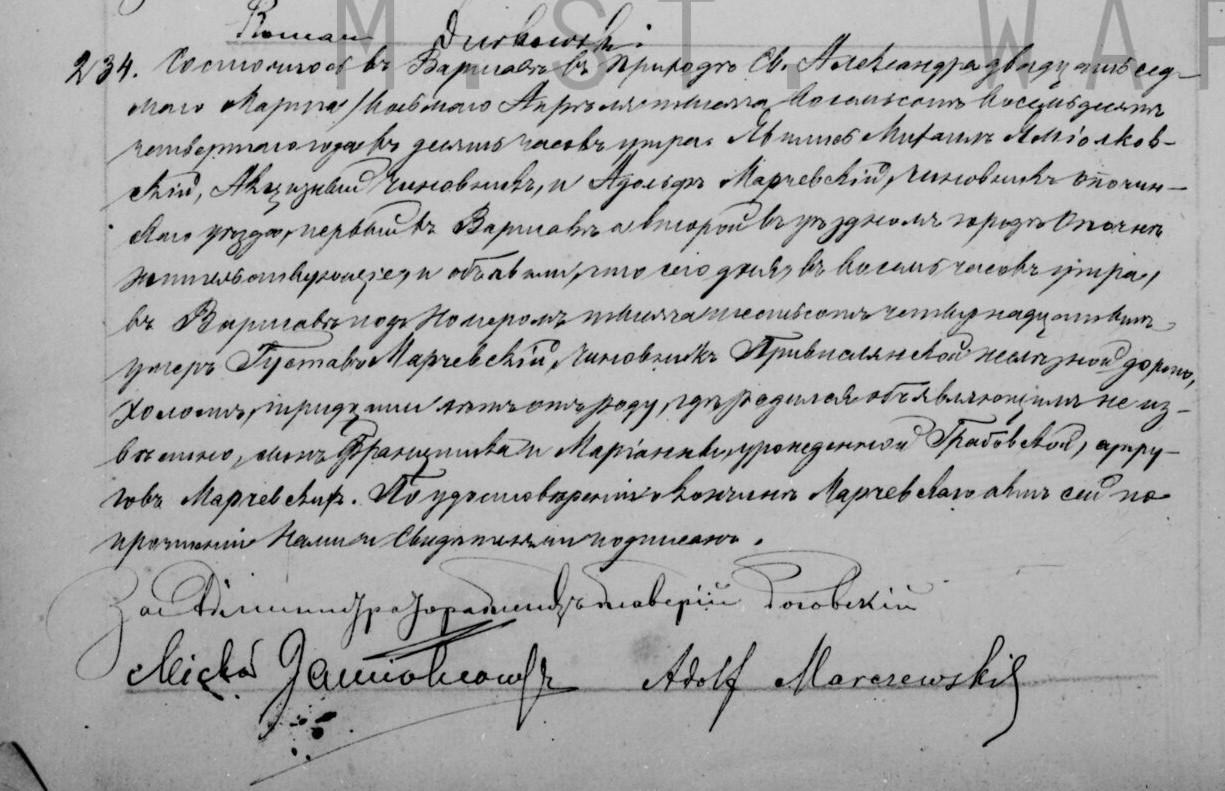 M. ST. WAR
Roman Durkowski.
234. Состоялось въ Варшавѣ въ приходѣ Св. Александра двадцать сед-
маго Марта/восьмаго Апрѣля тысяча восемьсотъ восемьдесятъ
четвертаго года въ десять часовъ утра. Явились Михаилъ Яміолков-
скій, Акцизный Чиновникъ, и Адольфъ Марчевскій, чиновникъ опочин-
скаго уѣзда, первый въ Варшавѣ а второй въ уѣздномъ городѣ Опочнѣ
жительствующіе, и объявили, что сего дня, въ восемь часовъ утра,
въ Варшавѣ подъ номеромъ тысяча шестьсотъ четырнадцатымъ
умеръ Густавъ Марчевскій, чиновникъ Привислянской желѣзной дороги,
холостъ, тридцати лѣтъ отъ роду, гдѣ родился объявляющимъ не из-
вѣстно, сынъ Францишка и Маріанны, урожденной Грабовской, супру-
говъ Марчевскихъ. По удостовѣреніи о кончинѣ Марчевскаго актъ сей по
прочтеніи Нами и Свидѣтелями подписанъ.
За Росовскій
Michał Jamiołkowski Adolf Marczewski